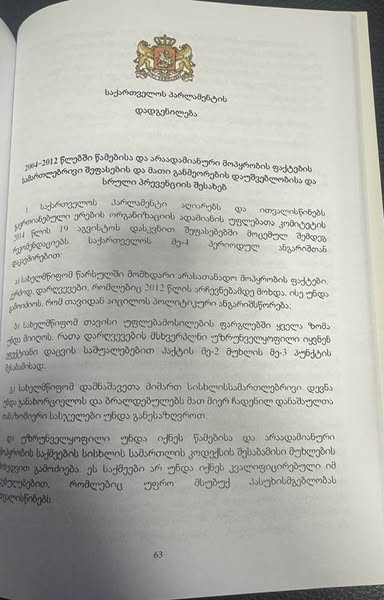 საქართველოს პარლამენტის
დადგენილება
2004-2012 წლებში წამებისა და არაადამიანური მოპყრობის ფაქტების
სამართლებრივი შეფასების და მათი განმეორების დაუშვებლობისა და
სრული პრევენციის შესახებ
1. საქართველოს პარლამენტი აღიარებს და ითვალისწინებს
გაერთიანებული ერების ორგანიზაციის ადამიანის უფლებათა კომიტეტის
2014 წლის 19 აგვისტოს დასკვნით შეფასებებში მოცემულ შემდეგ
რეკომენდაციებს საქართველოს მე-4 პერიოდულ ანგარიშთან
დაკავშირებით:
ა) სახელმწიფომ წარსულში მომხდარი არასათანადო მოპყრობის ფაქტები,
კერძოდ, დარღვევები, რომლებიც 2012 წლის არჩევნებამდე მოხდა, ისე უნდა
გამოიძიოს, რომ თავიდან აიცილოს პოლიტიკური ანგარიშსწორება;
ბ) სახელმწიფომ თავისი უფლებამოსილების ფარგლებში ყველა ზომა
უნდა მიიღოს, რათა დარღვევების მსხვერპლნი უზრუნველყოფილი იყვნენ
ეფექტიანი დაცვის საშუალებებით პაქტის მე-2 მუხლის მე-3 პუნქტის
შესაბამისად;
გ) სახელმწიფომ დამნაშავეთა მიმართ სისხლისსამართლებრივი დევნა
უნდა განახორციელოს და ბრალდებულებს მათ მიერ ჩადენილ დანაშაულთა
თანაზომიერი სასჯელები უნდა განესაზღვროთ;
დ) უზრუნველყოფილი უნდა იქნეს წამებისა და არაადამიანური
მოპყრობის საქმეების სისხლის სამართლის კოდექსის შესაბამისი მუხლების
მიხედვით გამოძიება. ეს საქმეები არ უნდა იქნეს კვალიფიცირებული იმ
მუხლებით, რომლებიც უფრო მსუბუქ პასუხისმგებლობას
ითვალისწინებს;
63